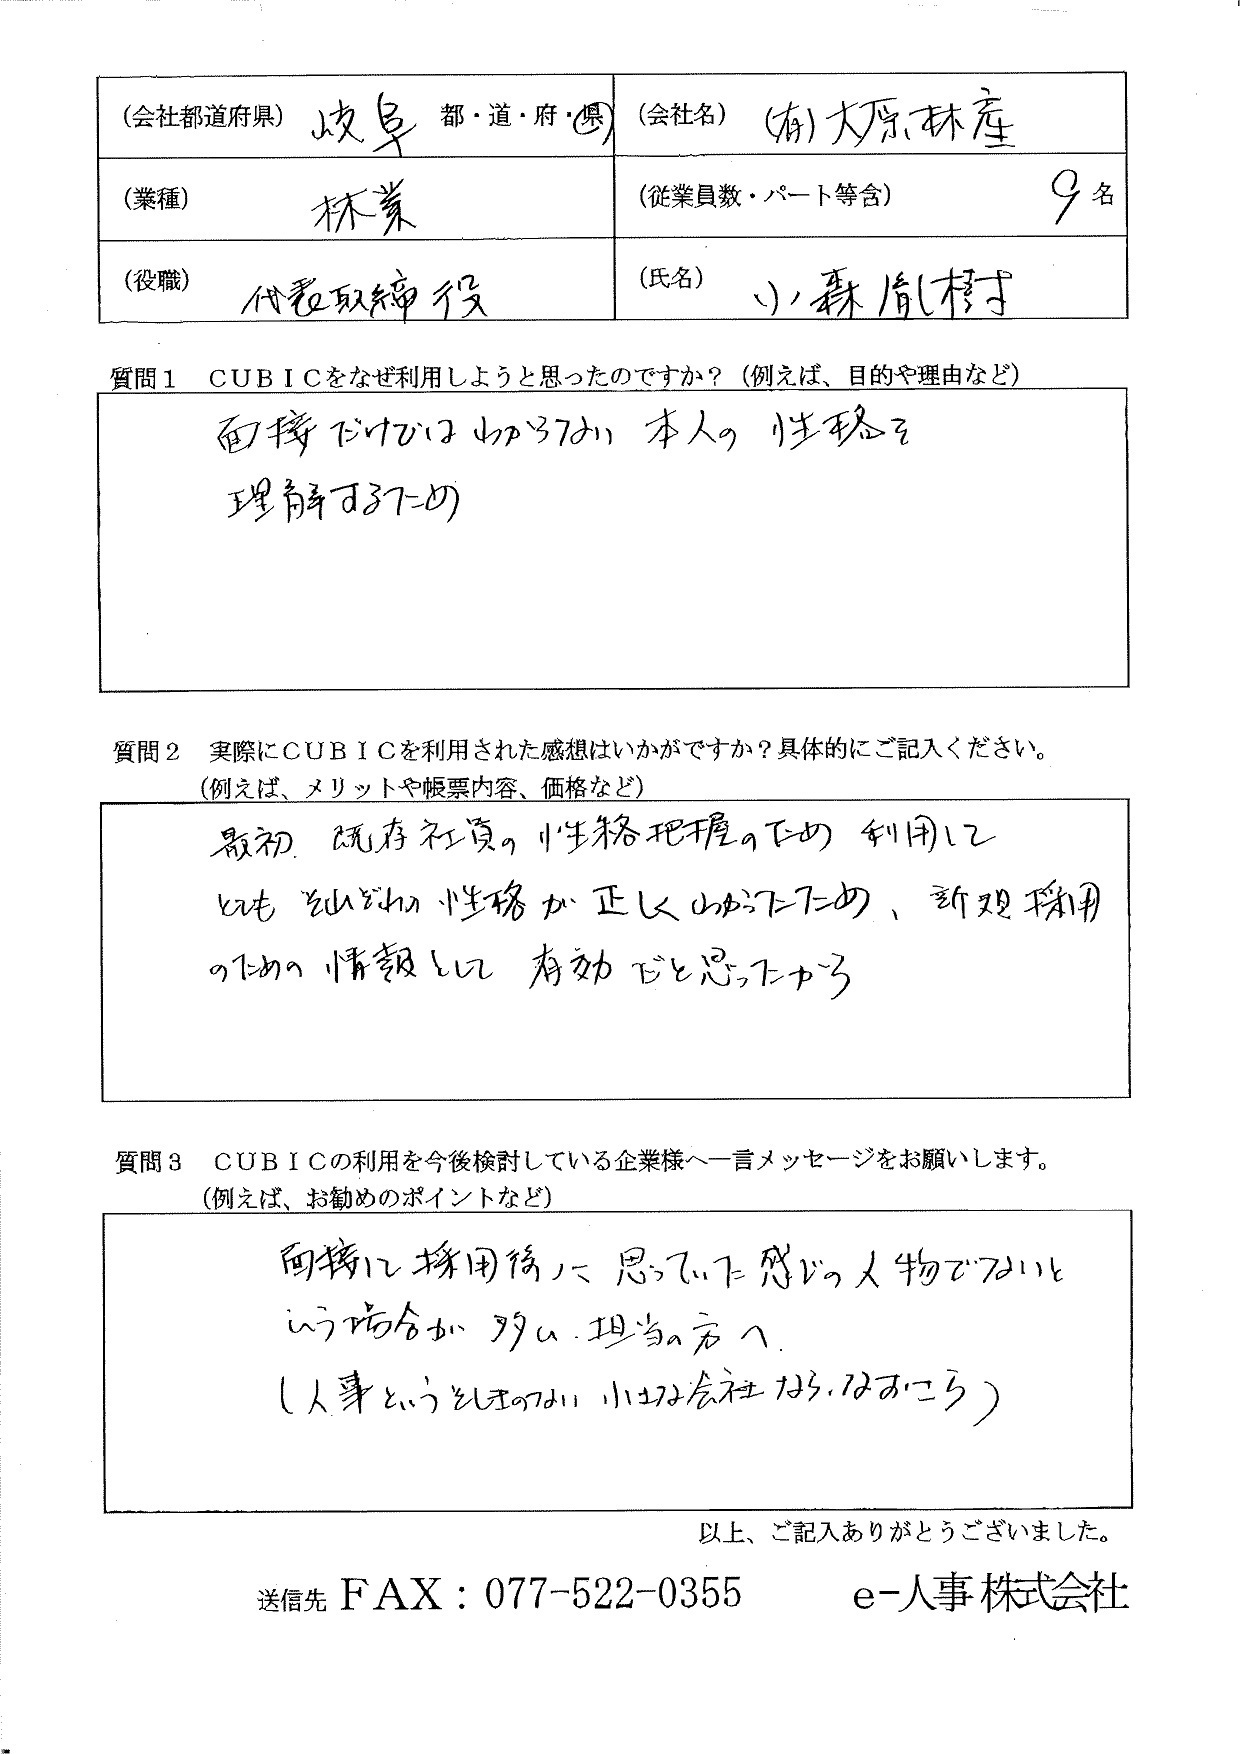 (会社都道府県) 岐阜 都・道・府・県 (会社名) (有)大原林産
(業種) 林業 (従業員数・パート等含) 9名
(役職) 代表取締役 (氏名) 小森胤樹
質問1 CUBICをなぜ利用しようと思ったのですか?(例えば、目的や理由など)
面接だけではわからない 本人の 性格を
理解するため
質問2 実際にCUBICを利用された感想はいかがですか?具体的にご記入ください。
(例えば、メリットや帳票内容、価格など)
最初、既存社員の性格把握のため 利用して
とても それぞれの性格が 正しくわかったため、新規採用
のための情報として 有効だと思ったから
質問3 CUBICの利用を今後検討している企業様へ一言メッセージをお願いします。
(例えば、お勧めのポイントなど)
面接して採用後に 思っていた感じの人物でないと
いう場合が 多い、担当の方へ
(人事という 小さな会社なら、なおさら)
以上、ご記入ありがとうございました。
送信先 FAX:077-522-0355 e-人事株式会社